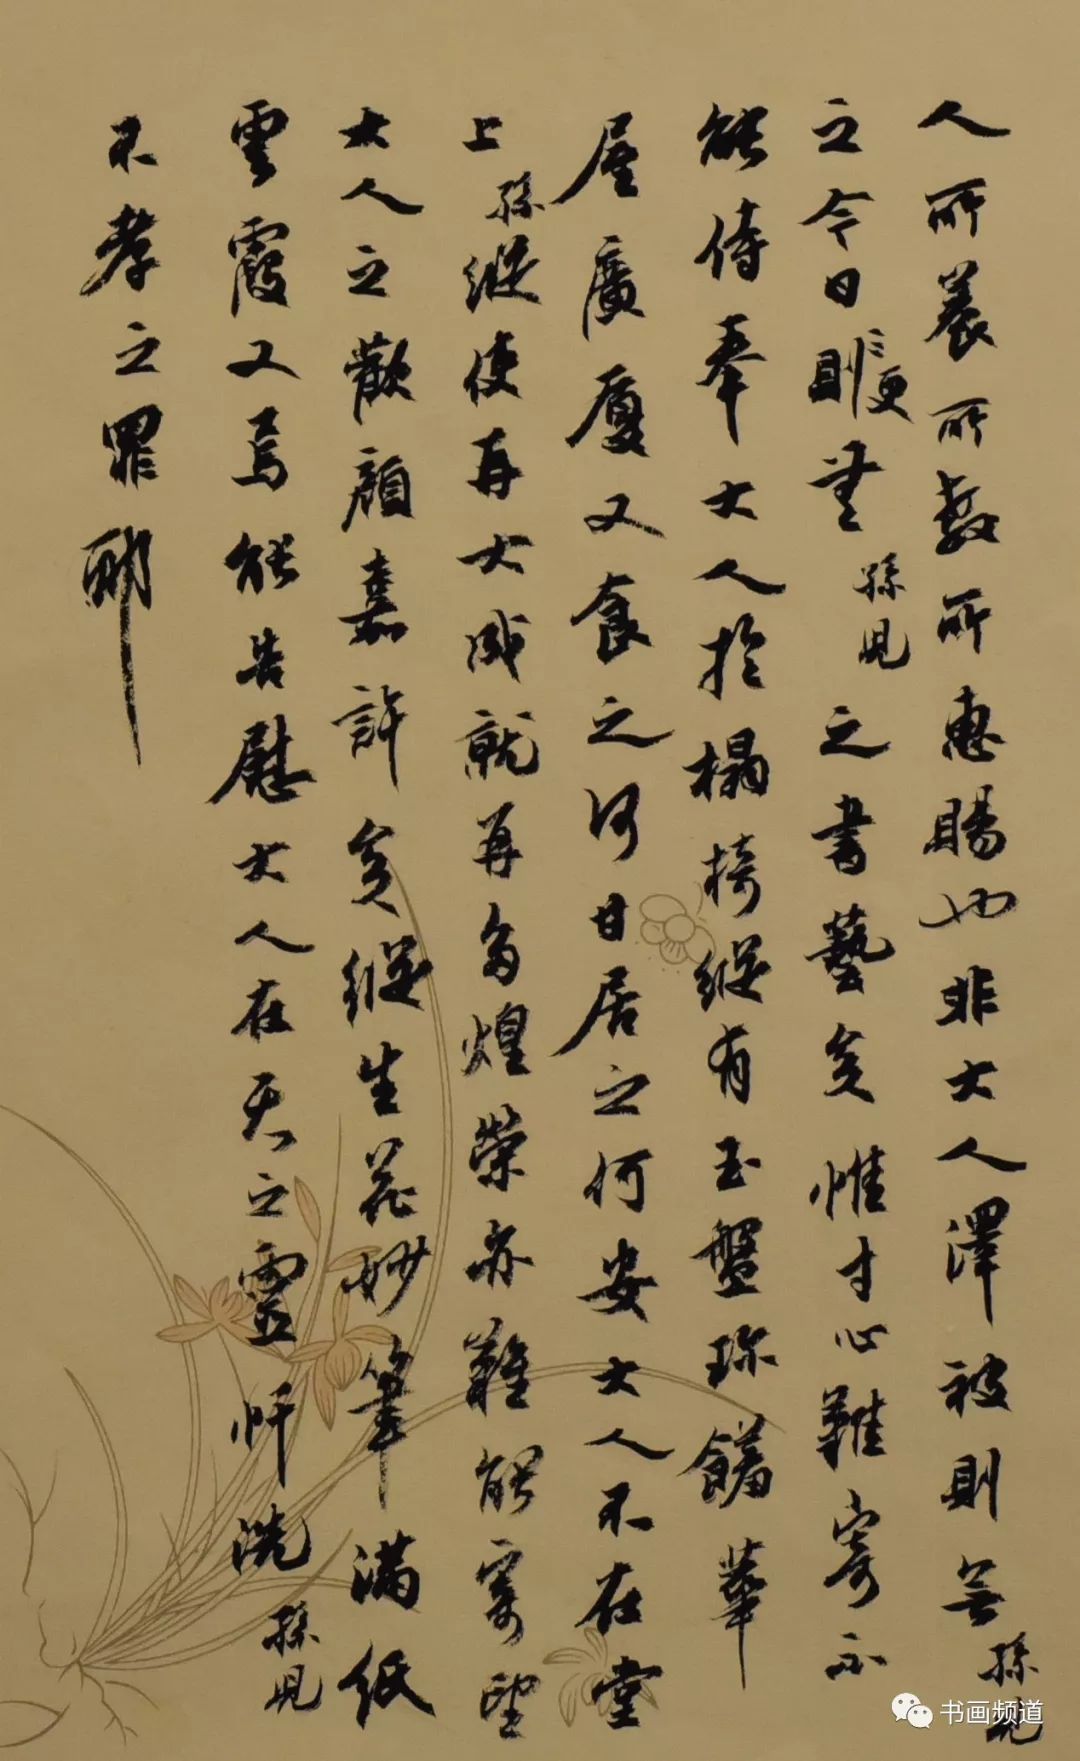 人所養所教所惠賜也非大人澤被則無孫兒
之今日則更無孫兒之書藝矣惟寸心難寄不
能侍奉大人於榻椅縱有玉盤珍饈華
屋廣廈又食之何甘居之何安大人不在堂
上孫縱使再大成就再多煌榮亦難能寄望
大人之歡顏嘉許矣縱生花妙筆滿紙
雲霞又焉能告慰大人在天之靈忏洗孫兒
不孝之罪耶
书画频道